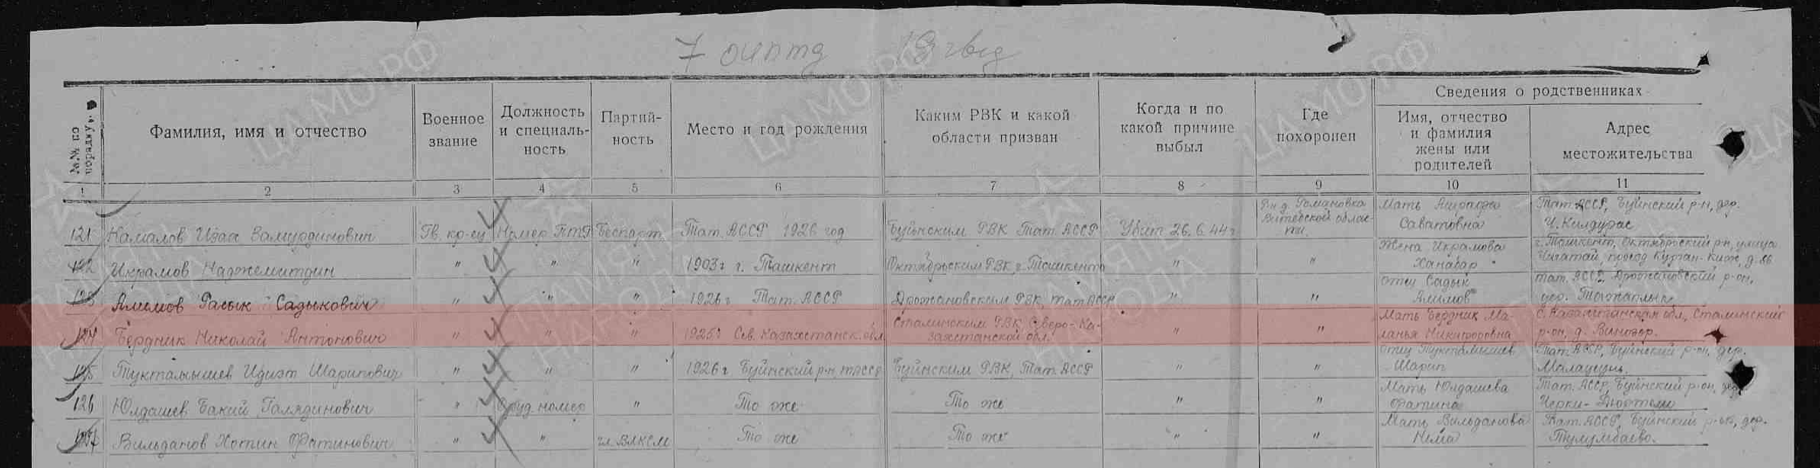 7 оиптд 19 гвсд
№№ по порядку
Фамилия, имя и отчество
Военное звание
Должность и специаль-ность
Партий-ность
Место и год рождения
Каким РВК и какой области призван
Когда и по какой причине выбыл
Где похоронен
Сведения о родственниках
Имя, отчество и фамилия жены или родителей
Адрес местожительства
1 2 3 4 5 6 7 8 9 10 11
121 Камалов Гв. кр-ец Номер ПТР Беспарт. Тат. АССР 1926 год Буинским РВК Тат. АССР Убит 26.6.44г р-н д. Романовка Витебской облас-ти. Мать Саватовна Тат. АССР, Буинский р-н, дер. Ч. Килдураз
122 Икрамов Наджемитдин " " " 1903г г. Ташкент Октябрьским РВК г. Ташкента " " Жена Икрамова Ханабар г. Ташкент, Октябрьский р-н, улица Чигатай, проезд
123 Алимов Расык Садыкович " " " 1926г Тат. АССР Дрожановским РВК, Тат. АССР " " отец Садык Алимов Тат. АССР Дрожановский р-он, дер.
124 Бердник Николай Антонович " " " 1925г Сев. Казахстанск. обл Сталинским РВК Северо-Ка-захстанской обл. " " Мать Бердник Ма-ланья Никифоровна С. Казахстанская обл, Сталинский р-он, д.
125 Тукталышев Шарипович " " " 1926г Буинский р-н ТАССР Буинским РВК, Тат. АССР " " отец Тукталышев Шарип Тат. АССР, Буинский р-он, дер.
126 Юлдашев Бакий Галядинович " Оруд. номер " То же То же " " Мать Юлдашева Фатина Тат. АССР, Буинский р-он, дер. Черки-
127 Вильданов Хотип Фатинович " " чл. ВЛКСМ То же То же " " Мать Вильданова Нема Тат. АССР, Буинский р-он, дер. Тумумбаево.